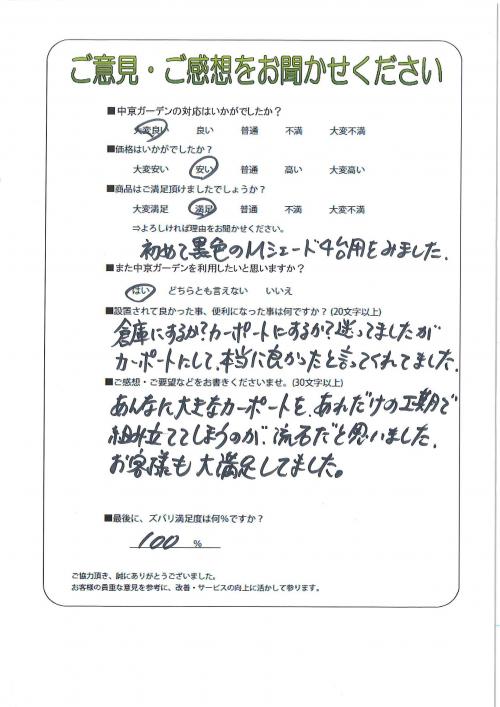 ご意見・ご感想をお聞かせください
■中京ガーデンの対応はいかがでしたか？
大変良い 良い 普通 不満 大変不満
■価格はいかがでしたか？
大変安い 安い 普通 高い 大変高い
■商品はご満足頂けましたでしょうか？
大変満足 満足 普通 不満 大変不満
⇒よろしければ理由をお聞かせください。
初めて黒色のMシェード4台用をみました.
■また中京ガーデンを利用したいと思いますか？
はい どちらとも言えない いいえ
■設置されて良かった事、便利になった事は何ですか？(20文字以上)
倉庫にするか?カーポートにするか?迷ってましたが
カーポートにして,本当に良かったと言ってくれてました.
■ご感想・ご要望などをお書きくださいませ。(30文字以上)
あんなに大きなカーポートを,あれだけの工期で
組み立ててしまうのが,流石だと思いました.
お客様も大満足してました。
■最後に、ズバリ満足度は何％ですか？
100 %
ご協力頂き、誠にありがとうございました。
お客様の貴重な意見を参考に、改善・サービスの向上に活かして参ります。